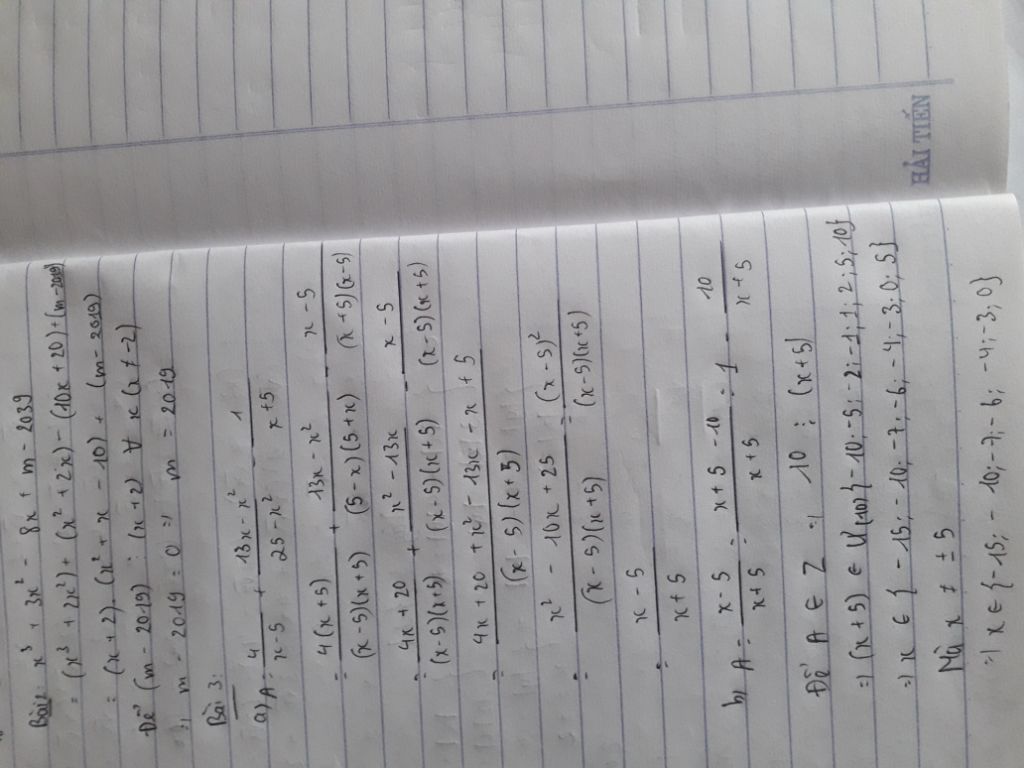 Bài: x³ + 3x² - 8x + m - 2039
= (x³ + 2x²) + (x² + 2x) - (10x + 20) + (m - 2019)
= (x + 2) . (x² + x - 10) + (m - 2019)
Để (m - 2019) ⋮ (x + 2) ∀ x (x ≠ -2)
=) m - 2019 = 0 =) m = 2019
Bài 3:
a) A = 4/(x - 5) + (13x - x²)/(25 - x²) - 1/(x + 5)
= 4(x + 5)/((x - 5)(x + 5)) + (13x - x²)/((5 - x)(5 + x)) - (x - 5)/((x + 5)(x - 5))
= (4x + 20)/((x - 5)(x + 5)) + (x² - 13x)/((x - 5)(x + 5)) - (x - 5)/((x - 5)(x + 5))
= (4x + 20 + x² - 13x - x + 5)/((x - 5)(x + 5))
= (x² - 10x + 25)/((x - 5)(x + 5)) = (x - 5)²/((x - 5)(x + 5))
= (x - 5)/(x + 5)
b) A = (x - 5)/(x + 5) = (x + 5 - 10)/(x + 5) = 1 - 10/(x + 5)
Để A ∈ Z =) 10 ⋮ (x + 5)
=) (x + 5) ∈ Ư(10) {-10; -5; -2; -1; 1; 2; 5; 10}
=) x ∈ {-15; -10; -7; -6; -4; -3; 0; 5}
Mà x ≠ ± 5
=) x ∈ {-15; -10; -7; -6; -4; -3; 0}
HẢI TIẾN